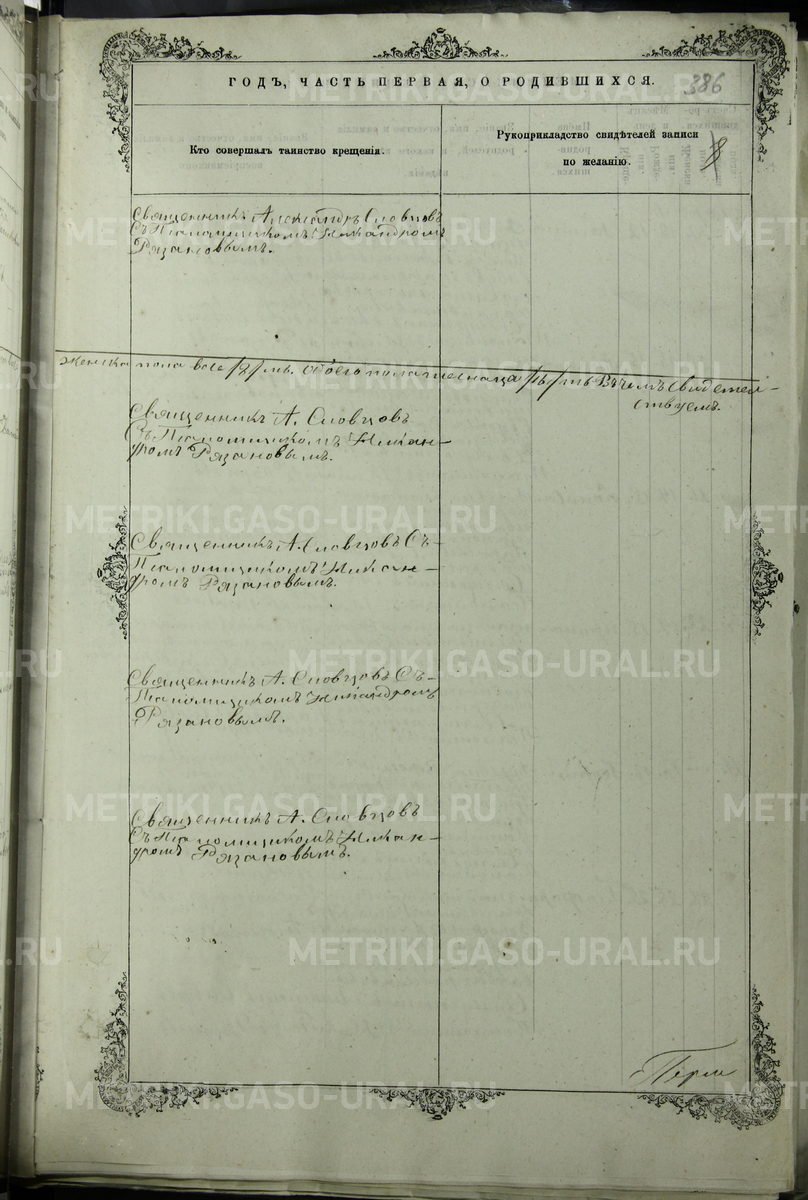 ГОДЪ, ЧАСТЬ ПЕРВАЯ, О РОДИВШИХСЯ.
386
Кто совершалъ таинство крещенія.
Рукоприкладство свидѣтелей записи
по желанію.
8
Священникъ Александръ Словцовъ
Съ Псаломщикомъ Никандромъ
Рязановымъ.
женска пола всего /2/ мъ. обоего пола
Въ чемъ свидетель-
ствуемъ.
Священникъ А. Словцовъ
Съ Псаломщикомъ Никан-
дромъ Рязановымъ.
Священникъ А. Словцовъ Съ
Псаломщикомъ Никан-
дромъ Рязановымъ.
Священникъ А. Словцовъ Съ
Псаломщикомъ Никандромъ
Рязановымъ.
Священникъ А. Словцовъ
Съ Псаломщикомъ Никан-
дромъ Рязановымъ.
METRIKI.GASO-URAL.RU